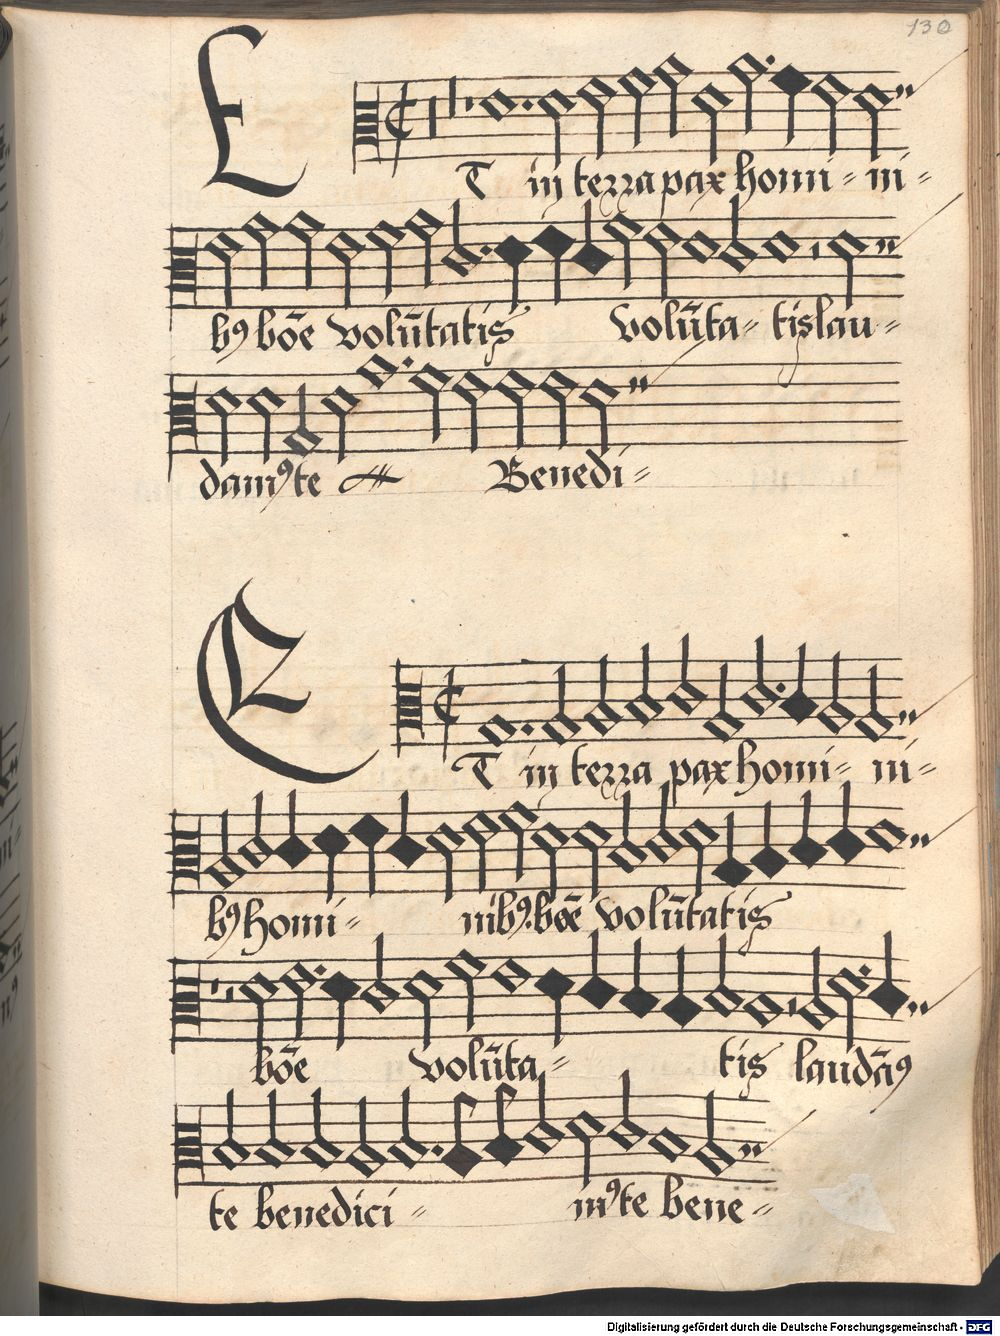 130
ET in terra pax homi= ni=
bꝰ bōe volūtatis volūta= tis lau=
damꝰ te Benedi=
ET in terra pax homi= ni=
bꝰ homi= nibꝰ. bōe volūtatis
bōe volūta= tis laudāꝰ
te benedici= mꝰ te bene=
Digitalisierung gefördert durch die Deutsche Forschungsgemeinschaft - DFG